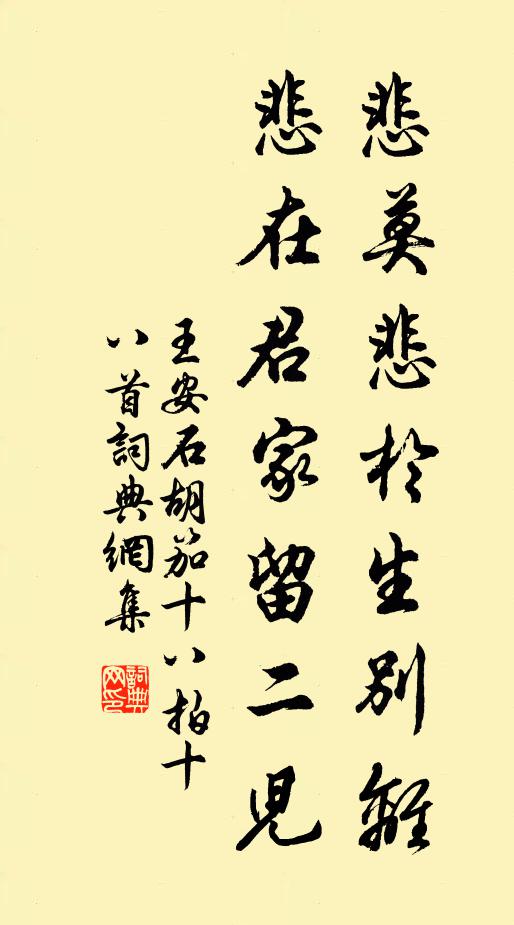 悲莫悲於生別離
悲在君家留二兒
王安石胡笳十八拍十
八首詞典網集
詞典
网印